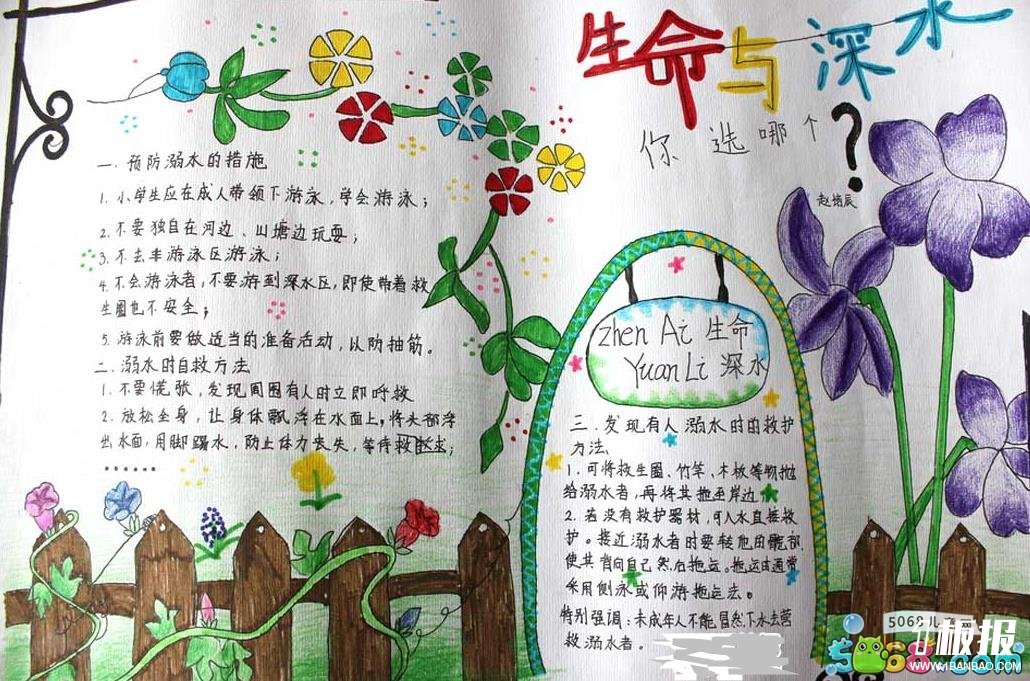 生命与深水
你选哪个?
赵培辰
一.预防溺水的措施
1.小学生应在成人带领下游泳,学会游泳;
2.不要独自在河边、山塘边玩耍;
3.不去非游泳区游泳;
4.不会游泳者,不要游到深水区,即使带着救
生圈也不安全;
5.游泳前要做适当的准备活动,以防抽筋。
二.溺水时自救方法
1.不要慌张,发现周围有人时立即呼救
2.放松全身,让身体飘浮在水面上,将头部浮
出水面,用脚踢水,防止体力丧失,等待救
......
zhen Ai 生命
Yuan Li 深水
三.发现有人溺水时的救护
方法.
1.可将救生圈、竹竿、木板等物抛
给溺水者,再将其拖至岸边
2.若没有救护器材,可入水直接救
护。接近溺水者时要转他的髋部,
使其背向自己然后拖运。拖运时通常
采用侧泳或仰游拖运法。
特别强调:未成年人不能冒然下水去营
救溺水者。
5068儿
板报
www.1BANBAO.COM